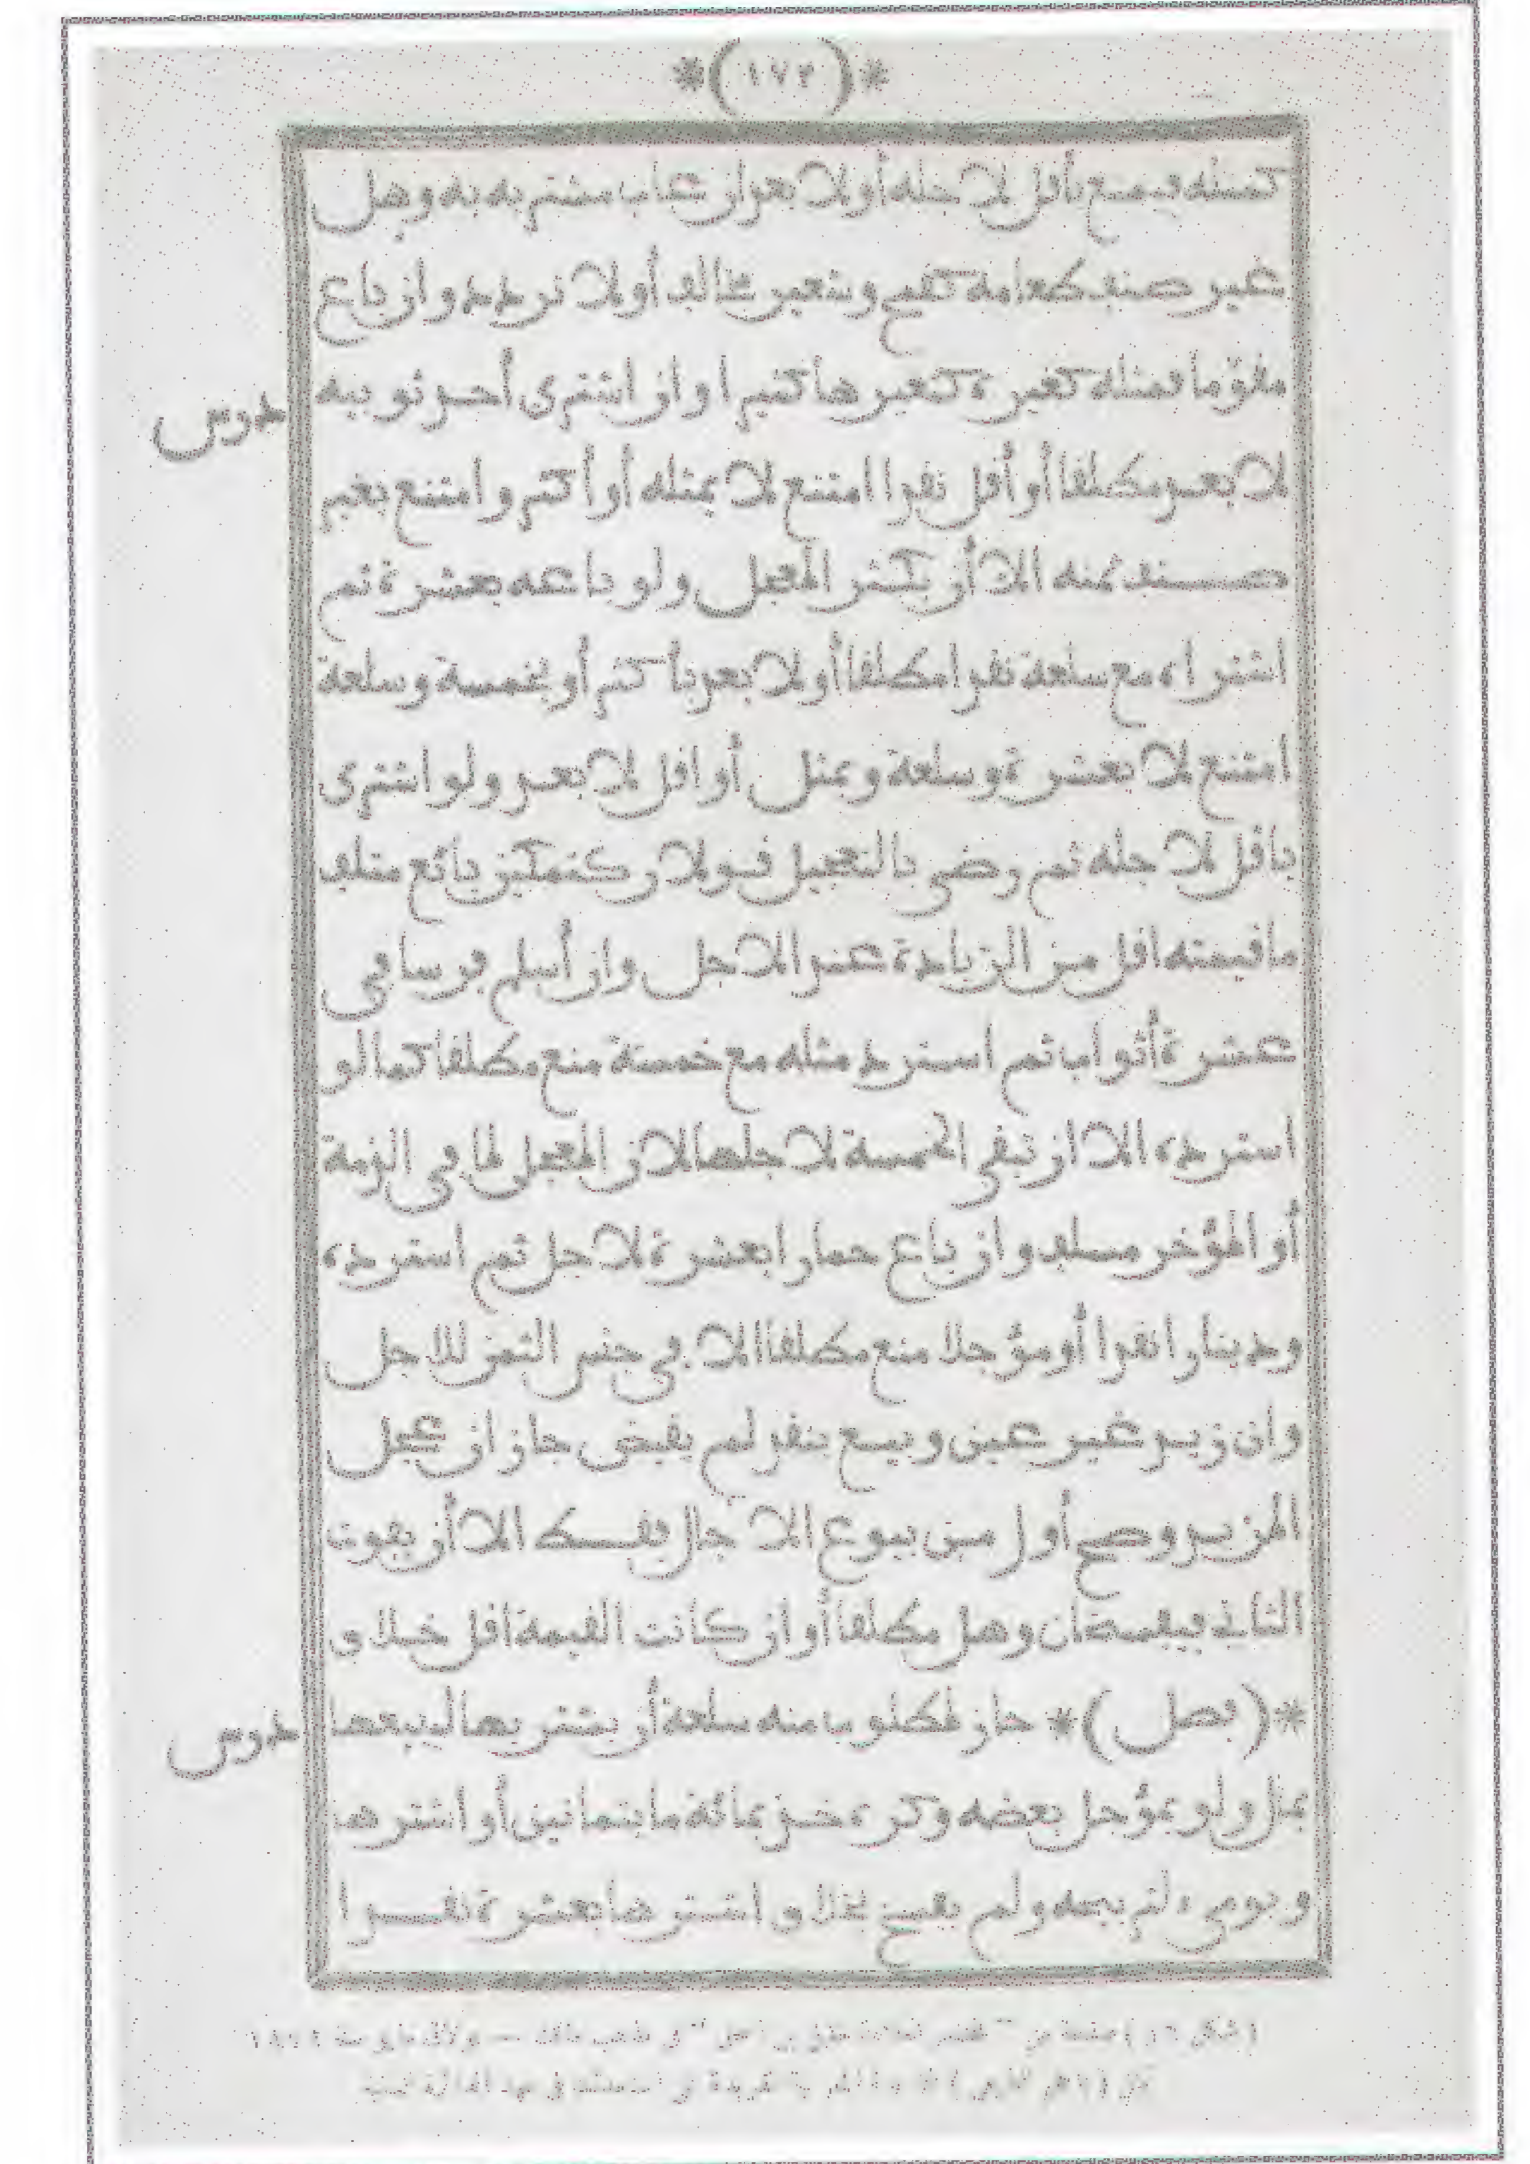 *(١٧٣)*
كمثله فيمنع بأقل لأجله أو لأبعد ان غاب مشتريه به وهل
غير صنف طعامه كقمح وشعير مخالف أو لا تردد وان باع
مقوّما فمثله كغيره كتغيرها كثيرا وان اشترى أحد ثوبيه
درس
لأبعد مطلقا أو أقل نقدا امتنع لا بمثله أو أكثر وامتنع بغير
صنف ثمنه الا أن يكثر المعجل ولو باعه بعشرة ثم
اشتراه مع سلعة نقدا مطلقا أو لأبعد بأكثر أو بخمسة وسلعة
امتنع لا بعشرة وسلعة وبمثل أو اقل لأبعد ولو اشترى
باقل لأجله ثم رضي بالتعجيل قولان كتمكين بائع متلف
ما قيمته اقل من الزيادة عند الاجل وان أسلم فرسا في
عشرة أثواب ثم استرد مثله مع خمسة منع مطلقا كما لو
استرده الا ان تبقى الخمسة لأجلها لان المعجل لما في الذمة
أو المؤخر مسلف وان باع حمارا بعشرة لأجل ثم استرده
ودينارا نقدا أو مؤجلا منع مطلقا الا في جنس الثمن للاجل
وان زيد غير عين وبيع بنقد لم يقبض جاز ان عجل
المزيد وصح أول من بيوع الآجال فقط الا أن يفوت
الثاني فيفسخان وهل مطلقا أو ان كانت القيمة اقل خلاف
*(فصل)* جاز لمطلوب منه سلعة أن يشتريها ليبيعها
درس
بمال ولو بمؤجل بعضه وكره خذ بمائة ما بثمانين أو اشترها
ويومىء لتربيحه ولم يفسخ بخلاف اشترها بعشرة نقدا
(شكل ١٦) صفحة من